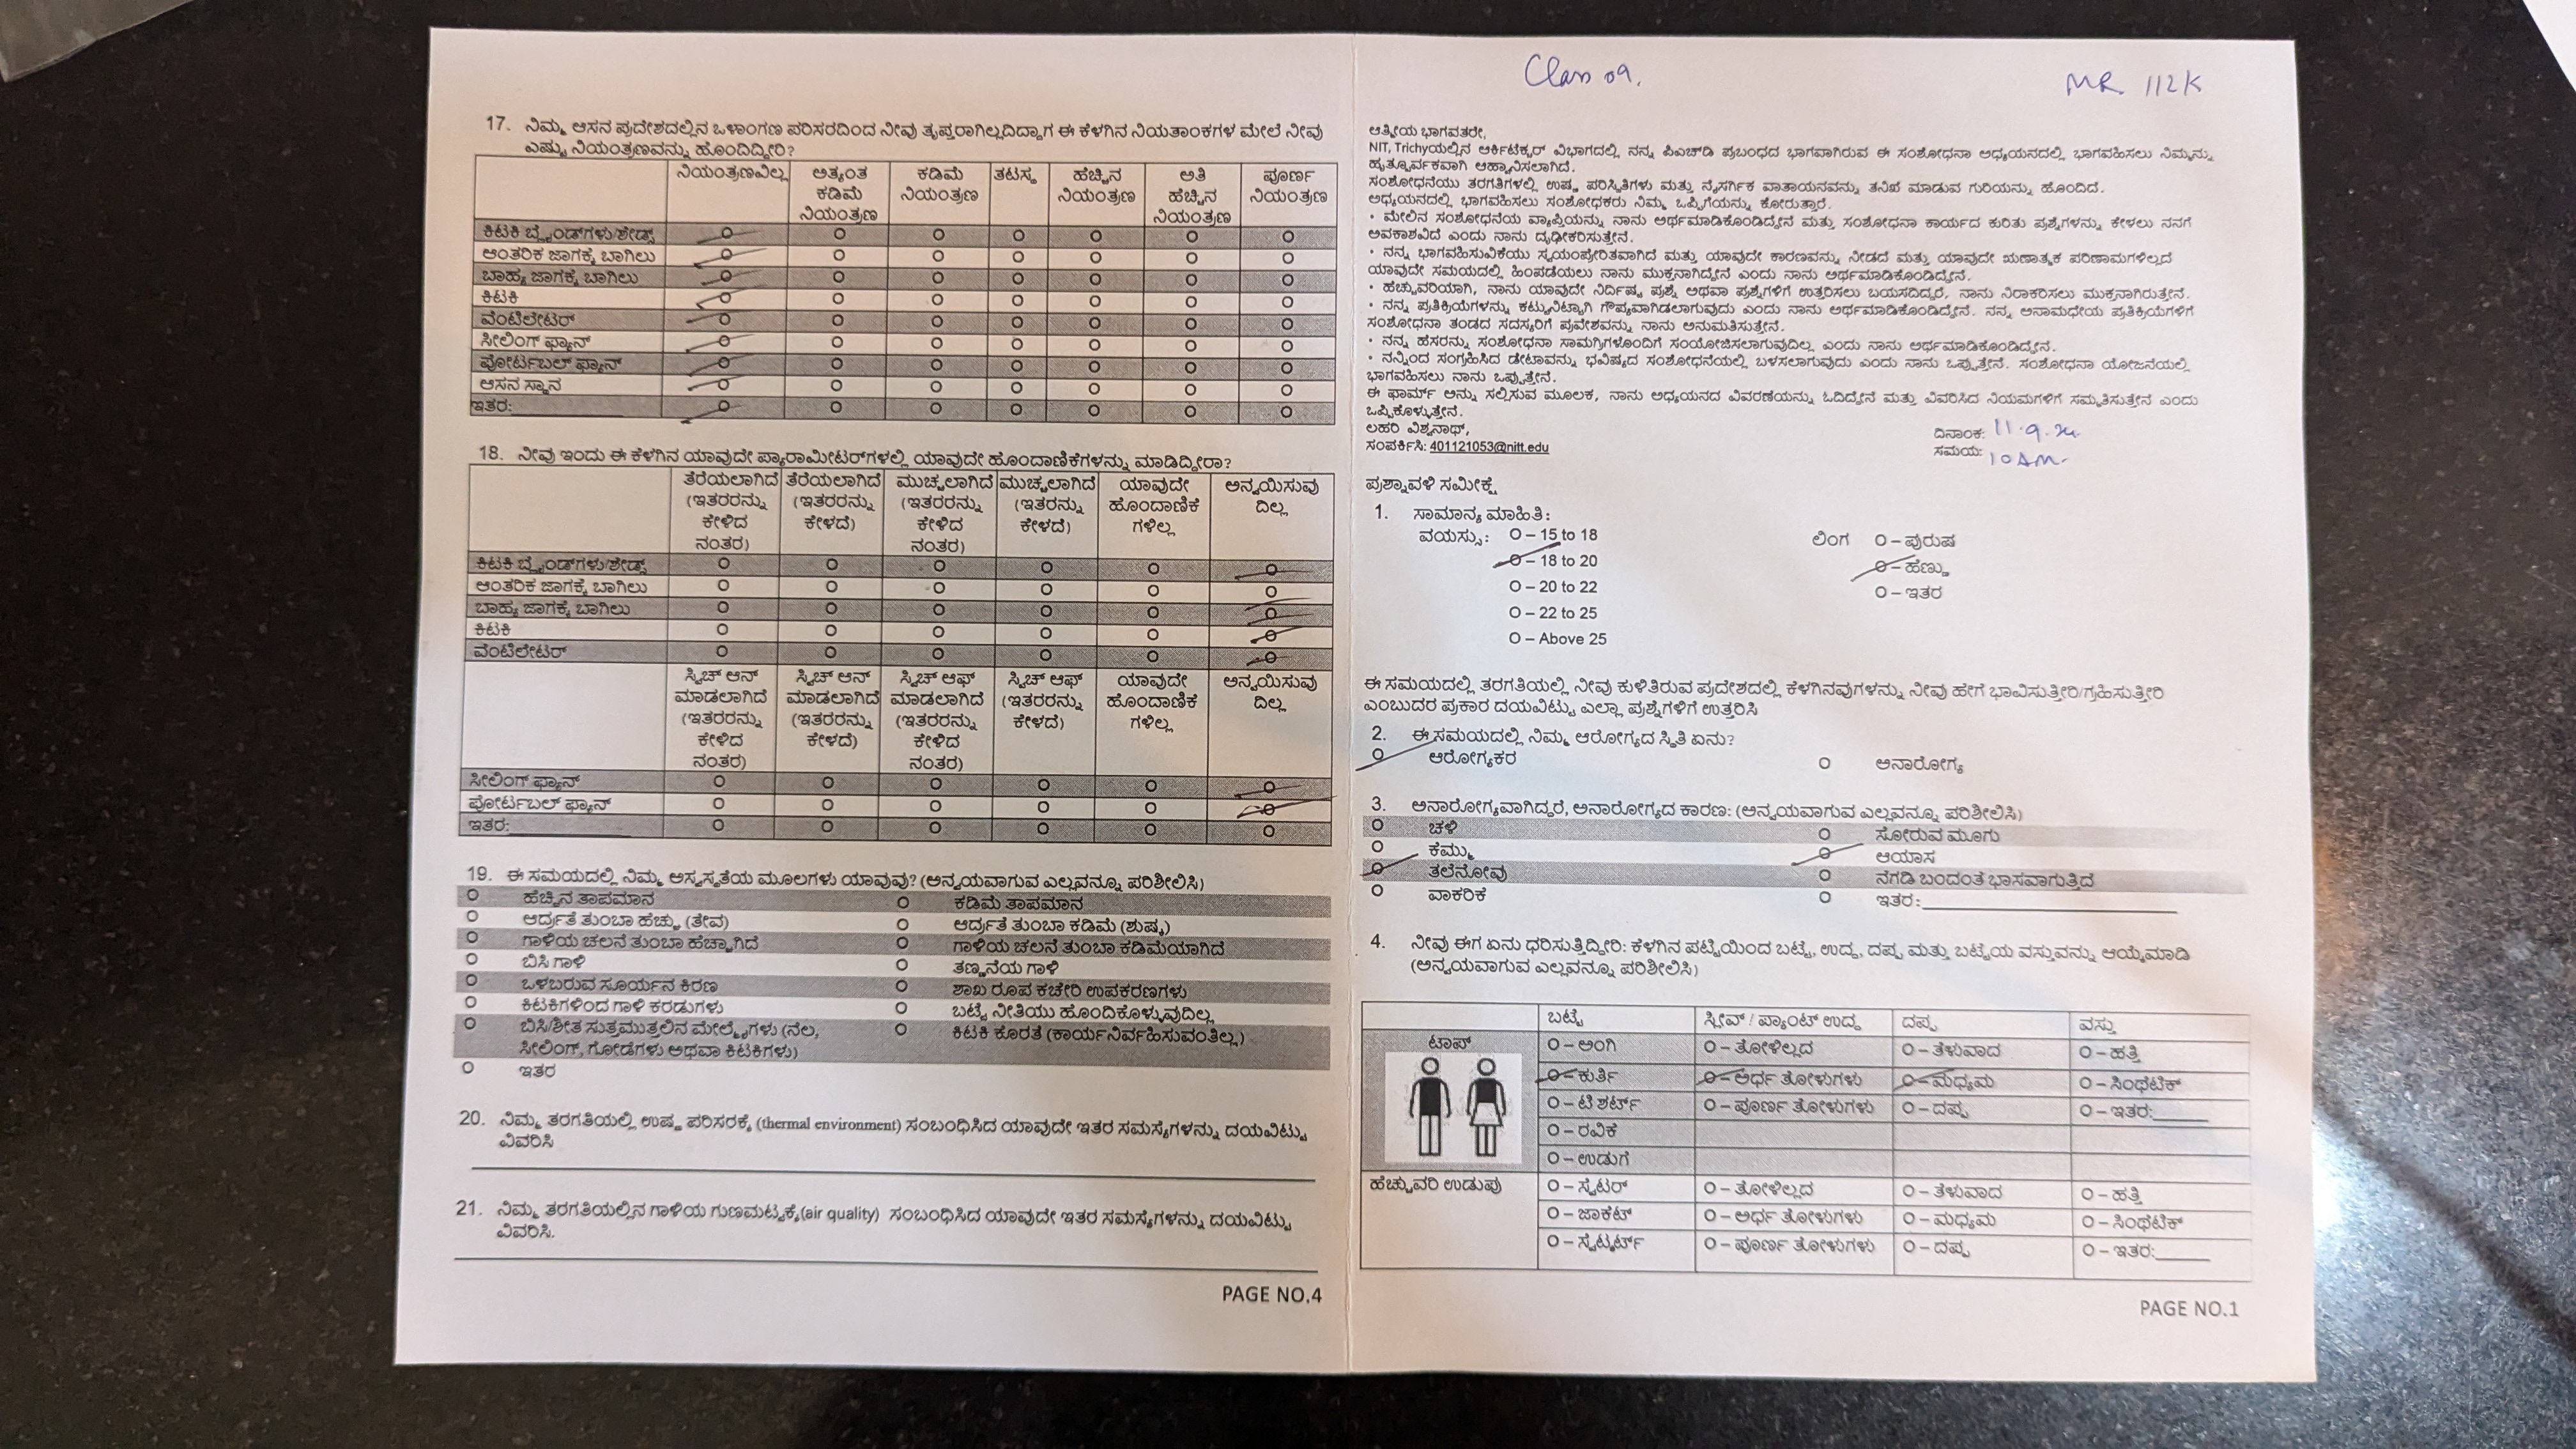 17. ನಿಮ್ಮ ಆಸನ ಪ್ರದೇಶದಲ್ಲಿನ ಒಳಾಂಗಣ ಪರಿಸರದಿಂದ ನೀವು ತೃಪ್ತರಾಗಿಲ್ಲದಿದ್ದಾಗ ಈ ಕೆಳಗಿನ ನಿಯತಾಂಕಗಳ ಮೇಲೆ ನೀವು
ಎಷ್ಟು ನಿಯಂತ್ರಣವನ್ನು ಹೊಂದಿದ್ದೀರಿ?
ನಿಯಂತ್ರಣವಿಲ್ಲ ಅತ್ಯಂತ ಕಡಿಮೆ ನಿಯಂತ್ರಣ ಕಡಿಮೆ ನಿಯಂತ್ರಣ ತಟಸ್ಥ ಹೆಚ್ಚಿನ ನಿಯಂತ್ರಣ ಅತಿ ಹೆಚ್ಚಿನ ನಿಯಂತ್ರಣ ಪೂರ್ಣ ನಿಯಂತ್ರಣ
ಕಿಟಕಿ ಬ್ಲೈಂಡ್‌ಗಳು/ಶೇಡ್ಸ್ O O O O O O O
ಆಂತರಿಕ ಜಾಗಕ್ಕೆ ಬಾಗಿಲು O O O O O O O
ಬಾಹ್ಯ ಜಾಗಕ್ಕೆ ಬಾಗಿಲು O O O O O O O
ಕಿಟಕಿ O O O O O O O
ವೆಂಟಿಲೇಟರ್ O O O O O O O
ಸೀಲಿಂಗ್ ಫ್ಯಾನ್ O O O O O O O
ಪೋರ್ಟಬಲ್ ಫ್ಯಾನ್ O O O O O O O
ಆಸನ ಸ್ಥಾನ O O O O O O O
ಇತರ: O O O O O O O
18. ನೀವು ಇಂದು ಈ ಕೆಳಗಿನ ಯಾವುದೇ ಪ್ಯಾರಾಮೀಟರ್‌ಗಳಲ್ಲಿ ಯಾವುದೇ ಹೊಂದಾಣಿಕೆಗಳನ್ನು ಮಾಡಿದ್ದೀರಾ?
ತೆರೆಯಲಾಗಿದೆ (ಇತರರನ್ನು ಕೇಳಿದ ನಂತರ) ತೆರೆಯಲಾಗಿದೆ (ಇತರರನ್ನು ಕೇಳದೆ) ಮುಚ್ಚಲಾಗಿದೆ (ಇತರರನ್ನು ಕೇಳಿದ ನಂತರ) ಮುಚ್ಚಲಾಗಿದೆ (ಇತರರನ್ನು ಕೇಳದೆ) ಯಾವುದೇ ಹೊಂದಾಣಿಕೆ ಗಳಿಲ್ಲ ಅನ್ವಯಿಸುವು ದಿಲ್ಲ
ಕಿಟಕಿ ಬ್ಲೈಂಡ್‌ಗಳು/ಶೇಡ್ಸ್ O O O O O O
ಆಂತರಿಕ ಜಾಗಕ್ಕೆ ಬಾಗಿಲು O O O O O O
ಬಾಹ್ಯ ಜಾಗಕ್ಕೆ ಬಾಗಿಲು O O O O O O
ಕಿಟಕಿ O O O O O O
ವೆಂಟಿಲೇಟರ್ O O O O O O
ಸ್ವಿಚ್ ಆನ್ ಮಾಡಲಾಗಿದೆ (ಇತರರನ್ನು ಕೇಳಿದ ನಂತರ) ಸ್ವಿಚ್ ಆನ್ ಮಾಡಲಾಗಿದೆ (ಇತರರನ್ನು ಕೇಳದೆ) ಸ್ವಿಚ್ ಆಫ್ ಮಾಡಲಾಗಿದೆ (ಇತರರನ್ನು ಕೇಳಿದ ನಂತರ) ಸ್ವಿಚ್ ಆಫ್ (ಇತರರನ್ನು ಕೇಳದೆ) ಯಾವುದೇ ಹೊಂದಾಣಿಕೆ ಗಳಿಲ್ಲ ಅನ್ವಯಿಸುವು ದಿಲ್ಲ
ಸೀಲಿಂಗ್ ಫ್ಯಾನ್ O O O O O O
ಪೋರ್ಟಬಲ್ ಫ್ಯಾನ್ O O O O O O
ಇತರ: O O O O O O
19. ಈ ಸಮಯದಲ್ಲಿ ನಿಮ್ಮ ಅಸ್ವಸ್ಥತೆಯ ಮೂಲಗಳು ಯಾವುವು? (ಅನ್ವಯವಾಗುವ ಎಲ್ಲವನ್ನೂ ಪರಿಶೀಲಿಸಿ)
O ಹೆಚ್ಚಿನ ತಾಪಮಾನ O ಕಡಿಮೆ ತಾಪಮಾನ
O ಆರ್ದ್ರತೆ ತುಂಬಾ ಹೆಚ್ಚು (ತೇವ) O ಆರ್ದ್ರತೆ ತುಂಬಾ ಕಡಿಮೆ (ಶುಷ್ಕ)
O ಗಾಳಿಯ ಚಲನೆ ತುಂಬಾ ಹೆಚ್ಚಾಗಿದೆ O ಗಾಳಿಯ ಚಲನೆ ತುಂಬಾ ಕಡಿಮೆಯಾಗಿದೆ
O ಬಿಸಿ ಗಾಳಿ O ತಣ್ಣನೆಯ ಗಾಳಿ
O ಒಳಬರುವ ಸೂರ್ಯನ ಕಿರಣ O ಶಾಖ ರೂಪ ಕಚೇರಿ ಉಪಕರಣಗಳು
O ಕಿಟಕಿಗಳಿಂದ ಗಾಳಿ ಕರಡುಗಳು O ಬಟ್ಟೆ ನೀತಿಯು ಹೊಂದಿಕೊಳ್ಳುವುದಿಲ್ಲ
O ಬಿಸಿ/ಶೀತ ಸುತ್ತಮುತ್ತಲಿನ ಮೇಲ್ಮೈಗಳು (ನೆಲ, O ಕಿಟಕಿ ಕೊರತೆ (ಕಾರ್ಯನಿರ್ವಹಿಸುವಂತಿಲ್ಲ)
ಸೀಲಿಂಗ್, ಗೋಡೆಗಳು ಅಥವಾ ಕಿಟಕಿಗಳು)
O ಇತರ
20. ನಿಮ್ಮ ತರಗತಿಯಲ್ಲಿ ಉಷ್ಣ ಪರಿಸರಕ್ಕೆ (thermal environment) ಸಂಬಂಧಿಸಿದ ಯಾವುದೇ ಇತರ ಸಮಸ್ಯೆಗಳನ್ನು ದಯವಿಟ್ಟು
ವಿವರಿಸಿ
21. ನಿಮ್ಮ ತರಗತಿಯಲ್ಲಿನ ಗಾಳಿಯ ಗುಣಮಟ್ಟಕ್ಕೆ(air quality) ಸಂಬಂಧಿಸಿದ ಯಾವುದೇ ಇತರ ಸಮಸ್ಯೆಗಳನ್ನು ದಯವಿಟ್ಟು
ವಿವರಿಸಿ.
PAGE NO.4
Class 09. MR 112K
ಆತ್ಮೀಯ ಭಾಗವತರೇ,
NIT, Trichyಯಲ್ಲಿನ ಆರ್ಕಿಟೆಕ್ಚರ್ ವಿಭಾಗದಲ್ಲಿ ನನ್ನ ಪಿಎಚ್‌ಡಿ ಪ್ರಬಂಧದ ಭಾಗವಾಗಿರುವ ಈ ಸಂಶೋಧನಾ ಅಧ್ಯಯನದಲ್ಲಿ ಭಾಗವಹಿಸಲು ನಿಮ್ಮನ್ನು
ಹೃತ್ಪೂರ್ವಕವಾಗಿ ಆಹ್ವಾನಿಸಲಾಗಿದೆ.
ಸಂಶೋಧನೆಯು ತರಗತಿಗಳಲ್ಲಿ ಉಷ್ಣ ಪರಿಸ್ಥಿತಿಗಳು ಮತ್ತು ನೈಸರ್ಗಿಕ ವಾತಾಯನವನ್ನು ತನಿಖೆ ಮಾಡುವ ಗುರಿಯನ್ನು ಹೊಂದಿದೆ.
ಅಧ್ಯಯನದಲ್ಲಿ ಭಾಗವಹಿಸಲು ಸಂಶೋಧಕರು ನಿಮ್ಮ ಒಪ್ಪಿಗೆಯನ್ನು ಕೋರುತ್ತಾರೆ.
• ಮೇಲಿನ ಸಂಶೋಧನೆಯ ವ್ಯಾಪ್ತಿಯನ್ನು ನಾನು ಅರ್ಥಮಾಡಿಕೊಂಡಿದ್ದೇನೆ ಮತ್ತು ಸಂಶೋಧನಾ ಕಾರ್ಯದ ಕುರಿತು ಪ್ರಶ್ನೆಗಳನ್ನು ಕೇಳಲು ನನಗೆ
ಅವಕಾಶವಿದೆ ಎಂದು ನಾನು ದೃಢೀಕರಿಸುತ್ತೇನೆ.
• ನನ್ನ ಭಾಗವಹಿಸುವಿಕೆಯು ಸ್ವಯಂಪ್ರೇರಿತವಾಗಿದೆ ಮತ್ತು ಯಾವುದೇ ಕಾರಣವನ್ನು ನೀಡದೆ ಮತ್ತು ಯಾವುದೇ ಋಣಾತ್ಮಕ ಪರಿಣಾಮಗಳಿಲ್ಲದೆ
ಯಾವುದೇ ಸಮಯದಲ್ಲಿ ಹಿಂಪಡೆಯಲು ನಾನು ಮುಕ್ತನಾಗಿದ್ದೇನೆ ಎಂದು ನಾನು ಅರ್ಥಮಾಡಿಕೊಂಡಿದ್ದೇನೆ.
• ಹೆಚ್ಚುವರಿಯಾಗಿ, ನಾನು ಯಾವುದೇ ನಿರ್ದಿಷ್ಟ ಪ್ರಶ್ನೆ ಅಥವಾ ಪ್ರಶ್ನೆಗಳಿಗೆ ಉತ್ತರಿಸಲು ಬಯಸದಿದ್ದರೆ, ನಾನು ನಿರಾಕರಿಸಲು ಮುಕ್ತನಾಗಿರುತ್ತೇನೆ.
• ನನ್ನ ಪ್ರತಿಕ್ರಿಯೆಗಳನ್ನು ಕಟ್ಟುನಿಟ್ಟಾಗಿ ಗೌಪ್ಯವಾಗಿಡಲಾಗುವುದು ಎಂದು ನಾನು ಅರ್ಥಮಾಡಿಕೊಂಡಿದ್ದೇನೆ. ನನ್ನ ಅನಾಮಧೇಯ ಪ್ರತಿಕ್ರಿಯೆಗಳಿಗೆ
ಸಂಶೋಧನಾ ತಂಡದ ಸದಸ್ಯರಿಗೆ ಪ್ರವೇಶವನ್ನು ನಾನು ಅನುಮತಿಸುತ್ತೇನೆ.
• ನನ್ನ ಹೆಸರನ್ನು ಸಂಶೋಧನಾ ಸಾಮಗ್ರಿಗಳೊಂದಿಗೆ ಸಂಯೋಜಿಸಲಾಗುವುದಿಲ್ಲ ಎಂದು ನಾನು ಅರ್ಥಮಾಡಿಕೊಂಡಿದ್ದೇನೆ.
• ನನ್ನಿಂದ ಸಂಗ್ರಹಿಸಿದ ಡೇಟಾವನ್ನು ಭವಿಷ್ಯದ ಸಂಶೋಧನೆಯಲ್ಲಿ ಬಳಸಲಾಗುವುದು ಎಂದು ನಾನು ಒಪ್ಪುತ್ತೇನೆ. ಸಂಶೋಧನಾ ಯೋಜನೆಯಲ್ಲಿ
ಭಾಗವಹಿಸಲು ನಾನು ಒಪ್ಪುತ್ತೇನೆ.
ಈ ಫಾರ್ಮ್ ಅನ್ನು ಸಲ್ಲಿಸುವ ಮೂಲಕ, ನಾನು ಅಧ್ಯಯನದ ವಿವರಣೆಯನ್ನು ಓದಿದ್ದೇನೆ ಮತ್ತು ವಿವರಿಸಿದ ನಿಯಮಗಳಿಗೆ ಸಮ್ಮತಿಸುತ್ತೇನೆ ಎಂದು
ಒಪ್ಪಿಕೊಳ್ಳುತ್ತೇನೆ.
ಲಹರಿ ವಿಶ್ವನಾಥ್,
ಸಂಪರ್ಕಿಸಿ: 401121053@nitt.edu
ದಿನಾಂಕ: 11.9.24
ಸಮಯ: 10 AM
ಪ್ರಶ್ನಾವಳಿ ಸಮೀಕ್ಷೆ
1. ಸಾಮಾನ್ಯ ಮಾಹಿತಿ:
ವಯಸ್ಸು: O – 15 to 18 ಲಿಂಗ O – ಪುರುಷ
O – 18 to 20 O – ಹೆಣ್ಣು
O – 20 to 22 O – ಇತರ
O – 22 to 25
O – Above 25
ಈ ಸಮಯದಲ್ಲಿ ತರಗತಿಯಲ್ಲಿ ನೀವು ಕುಳಿತಿರುವ ಪ್ರದೇಶದಲ್ಲಿ ಕೆಳಗಿನವುಗಳನ್ನು ನೀವು ಹೇಗೆ ಭಾವಿಸುತ್ತೀರಿ/ಗ್ರಹಿಸುತ್ತೀರಿ
ಎಂಬುದರ ಪ್ರಕಾರ ದಯವಿಟ್ಟು ಎಲ್ಲಾ ಪ್ರಶ್ನೆಗಳಿಗೆ ಉತ್ತರಿಸಿ
2. ಈ ಸಮಯದಲ್ಲಿ ನಿಮ್ಮ ಆರೋಗ್ಯದ ಸ್ಥಿತಿ ಏನು?
O ಆರೋಗ್ಯಕರ O ಅನಾರೋಗ್ಯ
3. ಅನಾರೋಗ್ಯವಾಗಿದ್ದರೆ, ಅನಾರೋಗ್ಯದ ಕಾರಣ: (ಅನ್ವಯವಾಗುವ ಎಲ್ಲವನ್ನೂ ಪರಿಶೀಲಿಸಿ)
O ಚಳಿ O ಸೋರುವ ಮೂಗು
O ಕೆಮ್ಮು O ಆಯಾಸ
O ತಲೆನೋವು O ನೆಗಡಿ ಬಂದಂತೆ ಭಾಸವಾಗುತ್ತಿದೆ
O ವಾಕರಿಕೆ O ಇತರ:
4. ನೀವು ಈಗ ಏನು ಧರಿಸುತ್ತಿದ್ದೀರಿ: ಕೆಳಗಿನ ಪಟ್ಟಿಯಿಂದ ಬಟ್ಟೆ, ಉದ್ದ, ದಪ್ಪ ಮತ್ತು ಬಟ್ಟೆಯ ವಸ್ತುವನ್ನು ಆಯ್ಕೆಮಾಡಿ
(ಅನ್ವಯವಾಗುವ ಎಲ್ಲವನ್ನೂ ಪರಿಶೀಲಿಸಿ)
ಬಟ್ಟೆ ಸ್ಲೀವ್ / ಪ್ಯಾಂಟ್ ಉದ್ದ ದಪ್ಪ ವಸ್ತು
ಟಾಪ್ O – ಅಂಗಿ O – ತೋಳಿಲ್ಲದ O – ತೆಳುವಾದ O – ಹತ್ತಿ
O – ಕುರ್ತಿ O – ಅರ್ಧ ತೋಳುಗಳು O – ಮಧ್ಯಮ O – ಸಿಂಥೆಟಿಕ್
O – ಟಿ ಶರ್ಟ್ O – ಪೂರ್ಣ ತೋಳುಗಳು O – ದಪ್ಪ O – ಇತರ:
O – ರವಿಕೆ
O – ಉಡುಗೆ
ಹೆಚ್ಚುವರಿ ಉಡುಪು O – ಸ್ವೆಟರ್ O – ತೋಳಿಲ್ಲದ O – ತೆಳುವಾದ O – ಹತ್ತಿ
O – ಜಾಕೆಟ್ O – ಅರ್ಧ ತೋಳುಗಳು O – ಮಧ್ಯಮ O – ಸಿಂಥೆಟಿಕ್
O – ಸ್ವೆಟ್ಶರ್ಟ್ O – ಪೂರ್ಣ ತೋಳುಗಳು O – ದಪ್ಪ O – ಇತರ:
PAGE NO.1